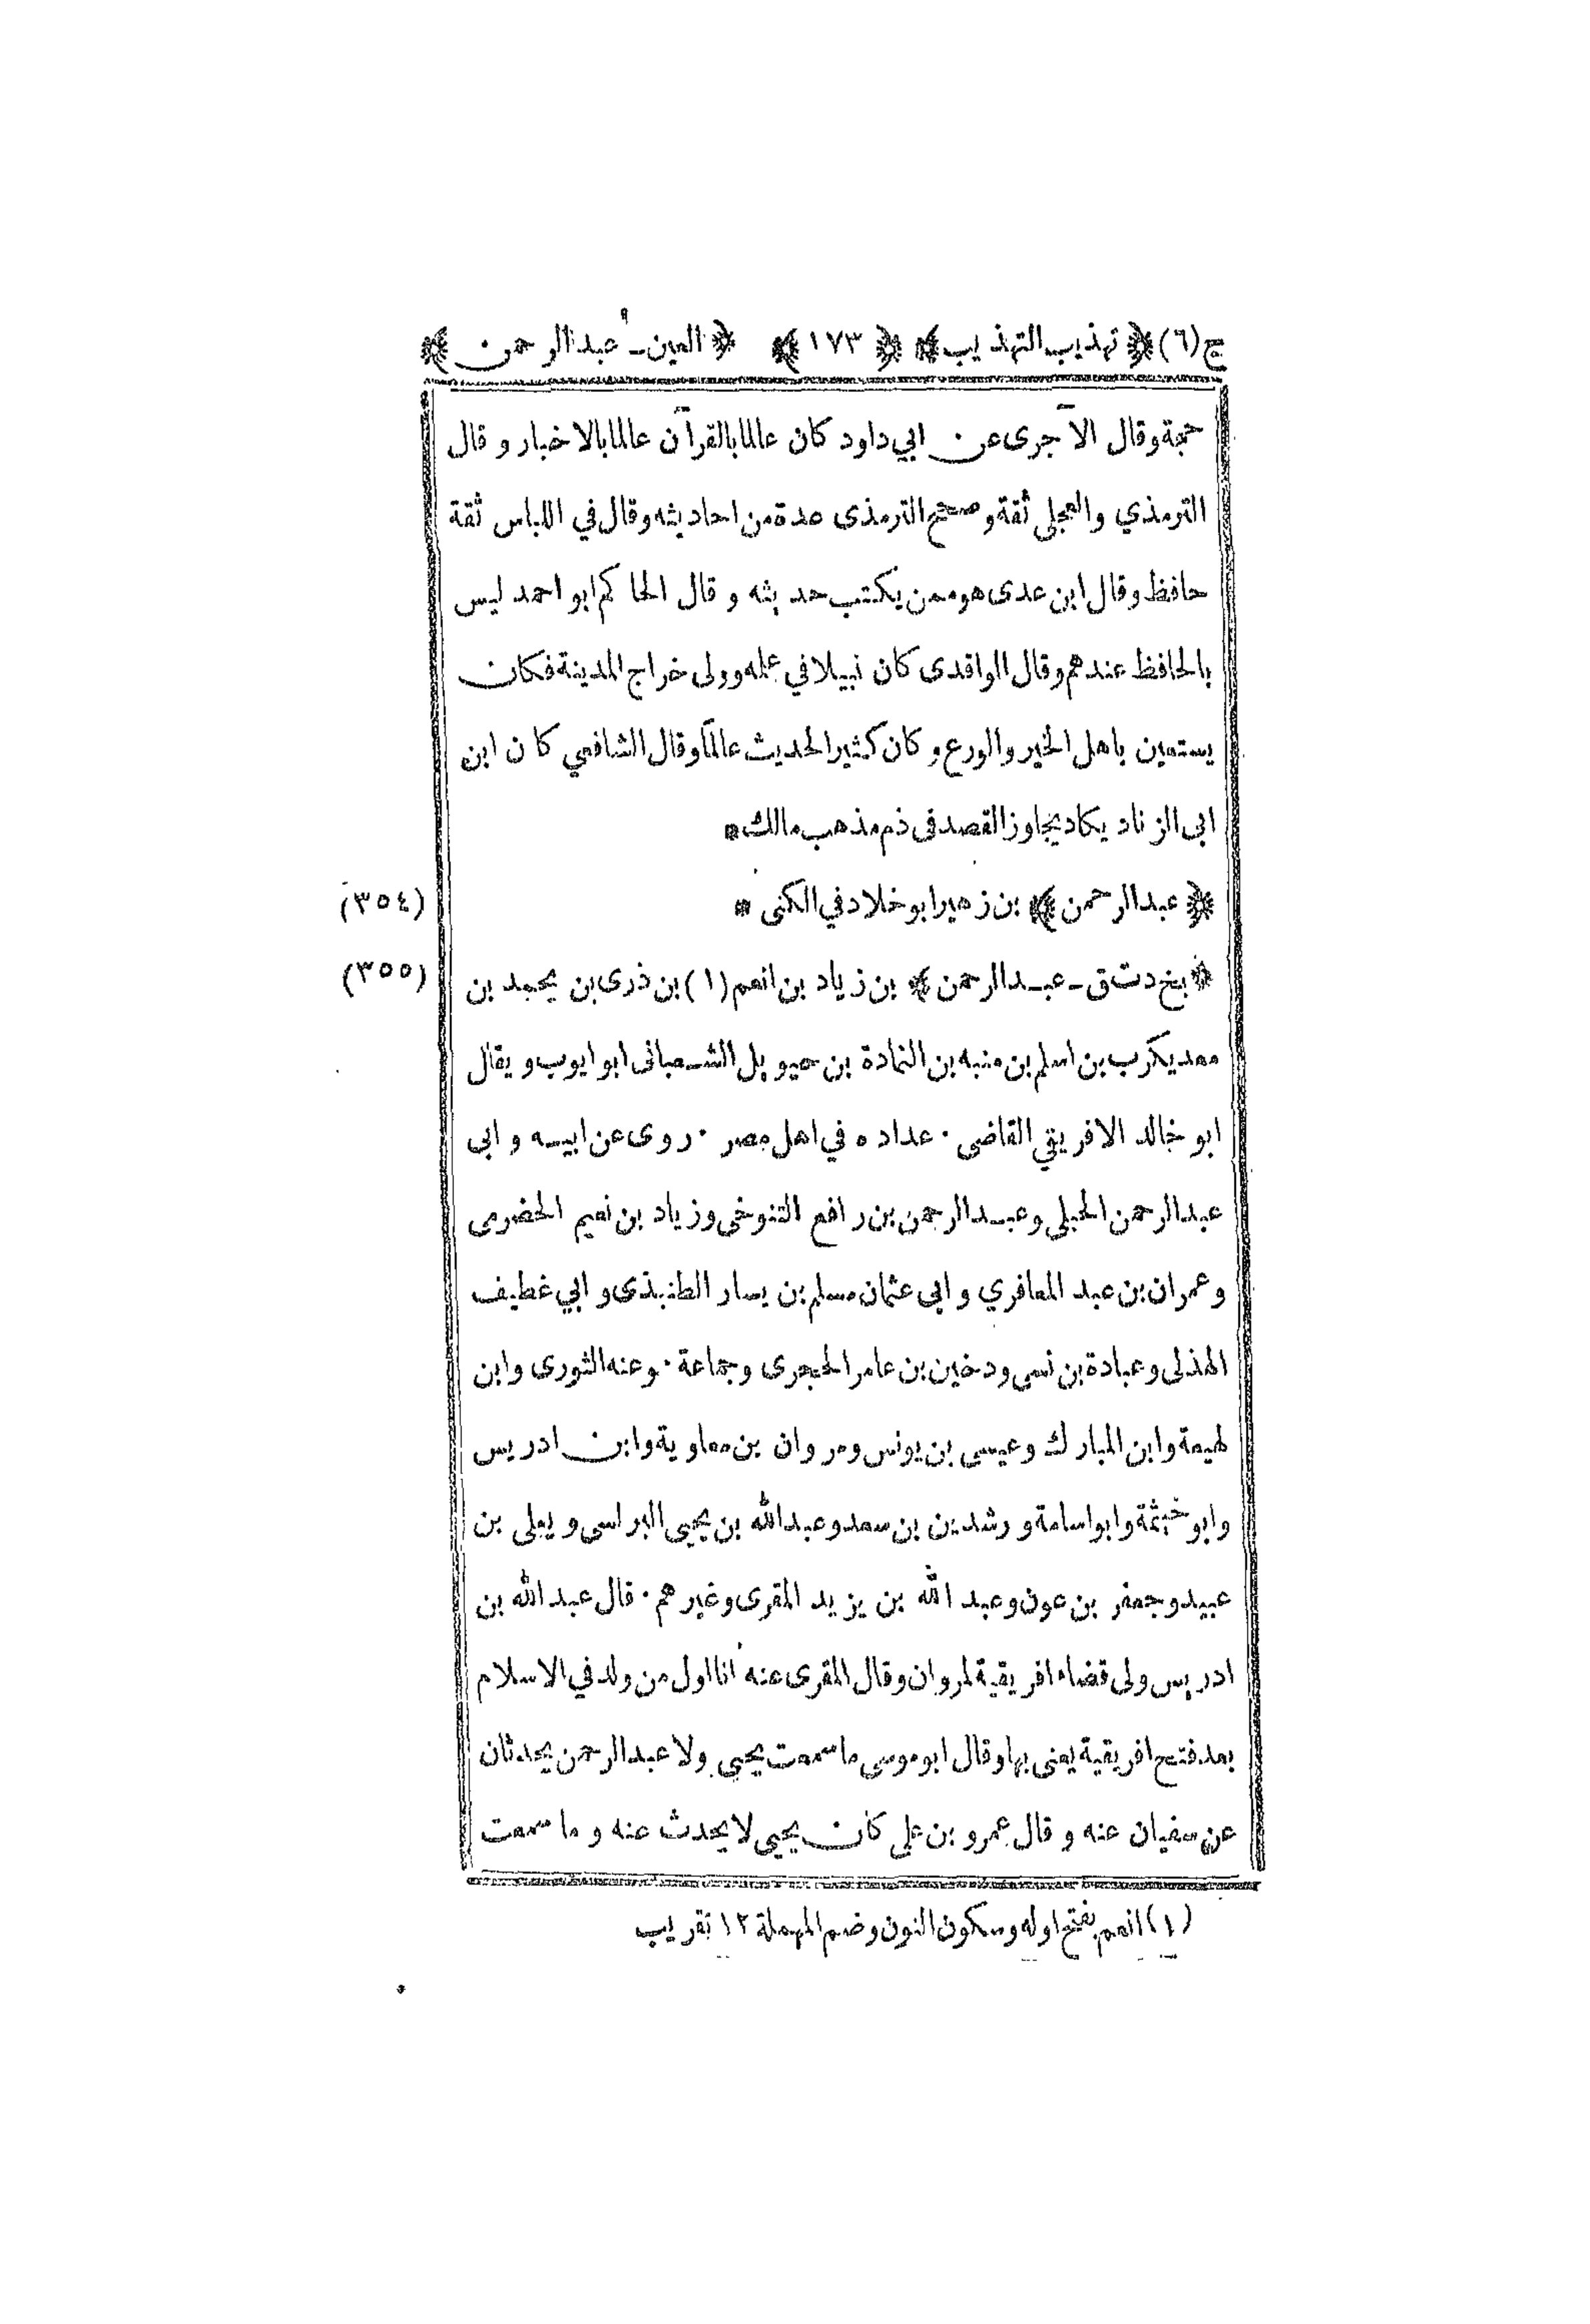 ج (٦) ﴿ تهذيب التهذيب ﴾ ﴿ ١٧٣ ﴾ ﴿ العين ـ عبد الرحمن ﴾
حجة وقال الآجرى عن ابي داود كان عالما بالقرآن عالما بالاخبار و قال
الترمذي والعجلى ثقة وصحح الترمذى عدة من احاديثه وقال في اللباس ثقة
حافظ وقال ابن عدى هو ممن يكتب حديثه و قال الحاكم ابو احمد ليس
بالحافظ عندهم وقال الواقدى كان نبيلا في علمه وولى خراج المدينة فكان
يستعين باهل الخير والورع وكان كثير الحديث عالماً وقال الشافعي كان ابن
ابى الزناد يكاد يجاوز القصد فى ذم مذهب مالك *
﴿ عبد الرحمن ﴾ بن زهير ابو خلاد في الكنى *
(٣٥٤)
﴿ بخ د ت ق ـ عبـد الرحمن ﴾ بن زياد بن انعم (١) بن ذرى بن يحمد بن
(٣٥٥)
معد يكرب بن اسلم بن منبه بن النمادة بن حيويل الشـعبانى ابو ايوب ويقال
ابو خالد الافريقي القاضى · عداده في اهل مصر · روى عن ابيـه و ابى
عبد الرحمن الحبلي وعبـد الرحمن بن رافع التنوخى وزياد بن نعيم الحضرمى
وعمران بن عبد المعافري و ابى عثمان مسلم بن يسار الطنبذى و ابي غطيف
الهذلى وعبادة بن نسى ودخين بن عامر الحجرى وجماعة · وعنه الثورى وابن
لهيعة وابن المبارك وعيسى بن يونس ومروان بن معاوية وابن ادريس
وابو خيثمة وابو اسامة ورشدين بن سعد وعبد الله بن يحيى البرلسى ويعلى بن
عبيد وجعفر بن عون وعبد الله بن يزيد المقرى وغيرهم · قال عبد الله بن
ادريس ولى قضاء افريقية لمروان وقال المقرى عنه انا اول من ولد في الاسلام
بعد فتح افريقية يعنى بها وقال ابو موسى ما سمعت يحيى ولا عبد الرحمن يحدثان
عن سفيان عنه و قال عمرو بن علي كان يحيى لا يحدث عنه و ما سمعت
(١) انعم بفتح اوله وسكون النون وضم المهملة ١٢ تقريب